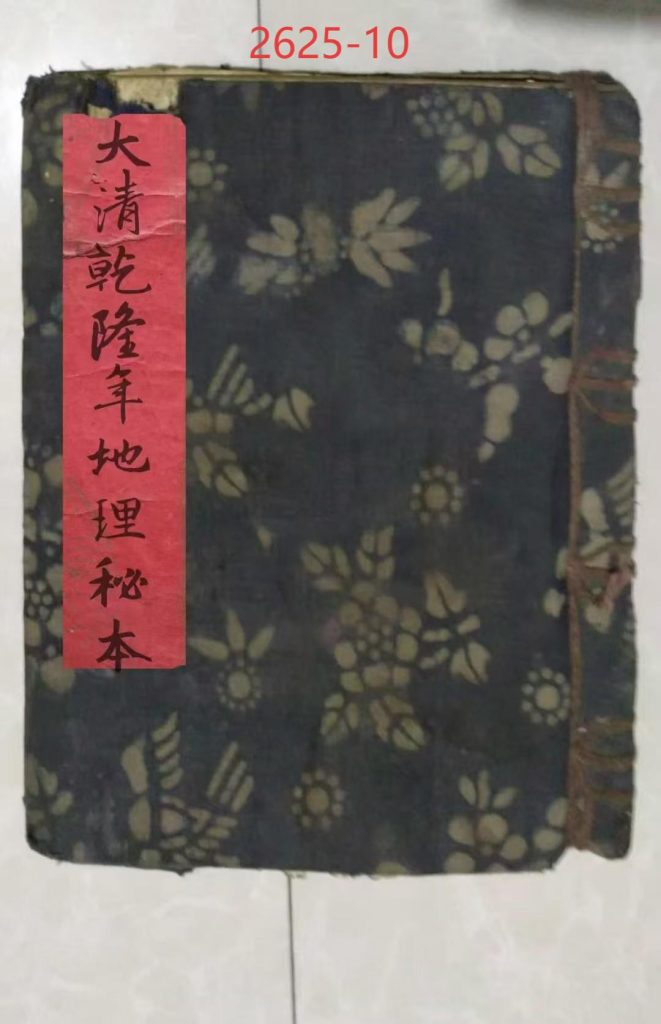 2625-10
大清乾隆年地理秘本